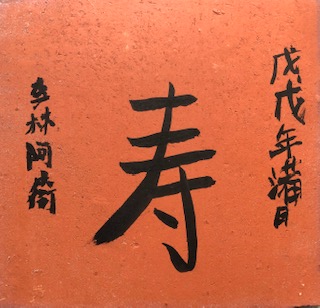 戊戌年蒲月
寿
乡林阿苗